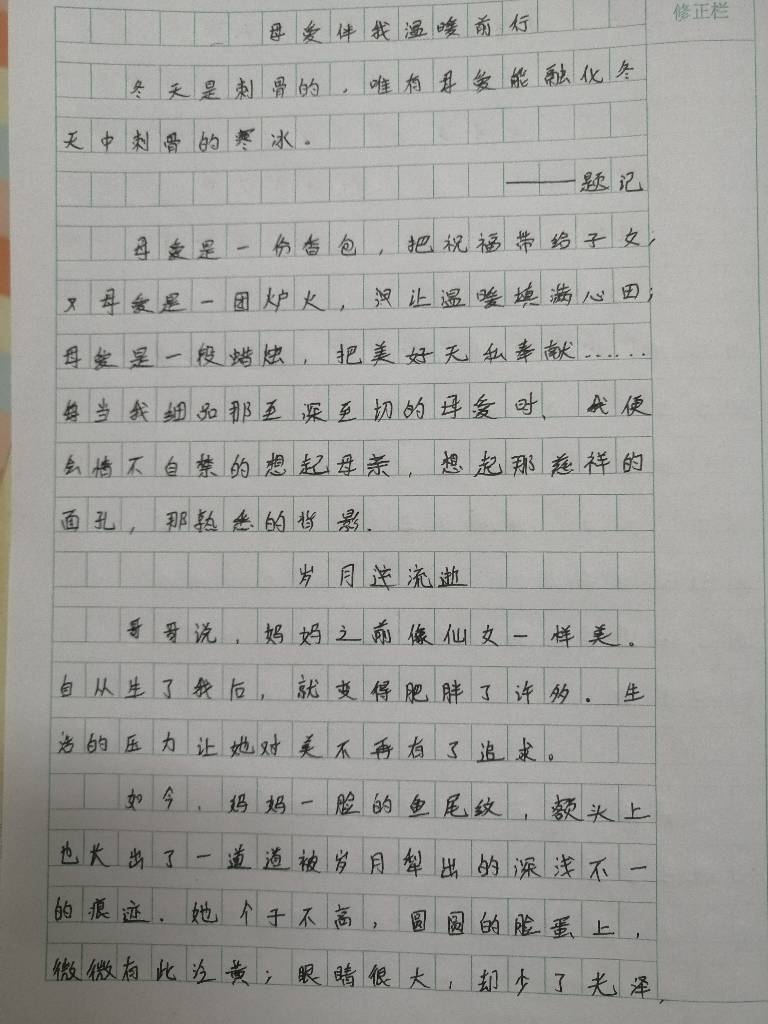 修正栏
母爱伴我温暖前行
冬天是刺骨的，唯有母爱能融化冬
天中刺骨的寒冰。
———题记
母爱是一份香包，把祝福带给子女；
母爱是一团炉火，让温暖填满心田；
母爱是一段蜡烛，把美好无私奉献……
每当我细品那至深至切的母爱时、我便
会情不自禁的想起母亲，想起那慈祥的
面孔，那熟悉的背影.
岁月 流逝
哥哥说，妈妈之前像仙女一样美。
自从生了我后，就变得肥胖了许多.生
活的压力让她对美不再有了追求。
如今，妈妈一脸的鱼尾纹，额头上
也长出了一道道被岁月犁出的深浅不一
的痕迹.她个子不高，圆圆的脸蛋上，
微微有些泛黄；眼睛很大，却少了光泽，